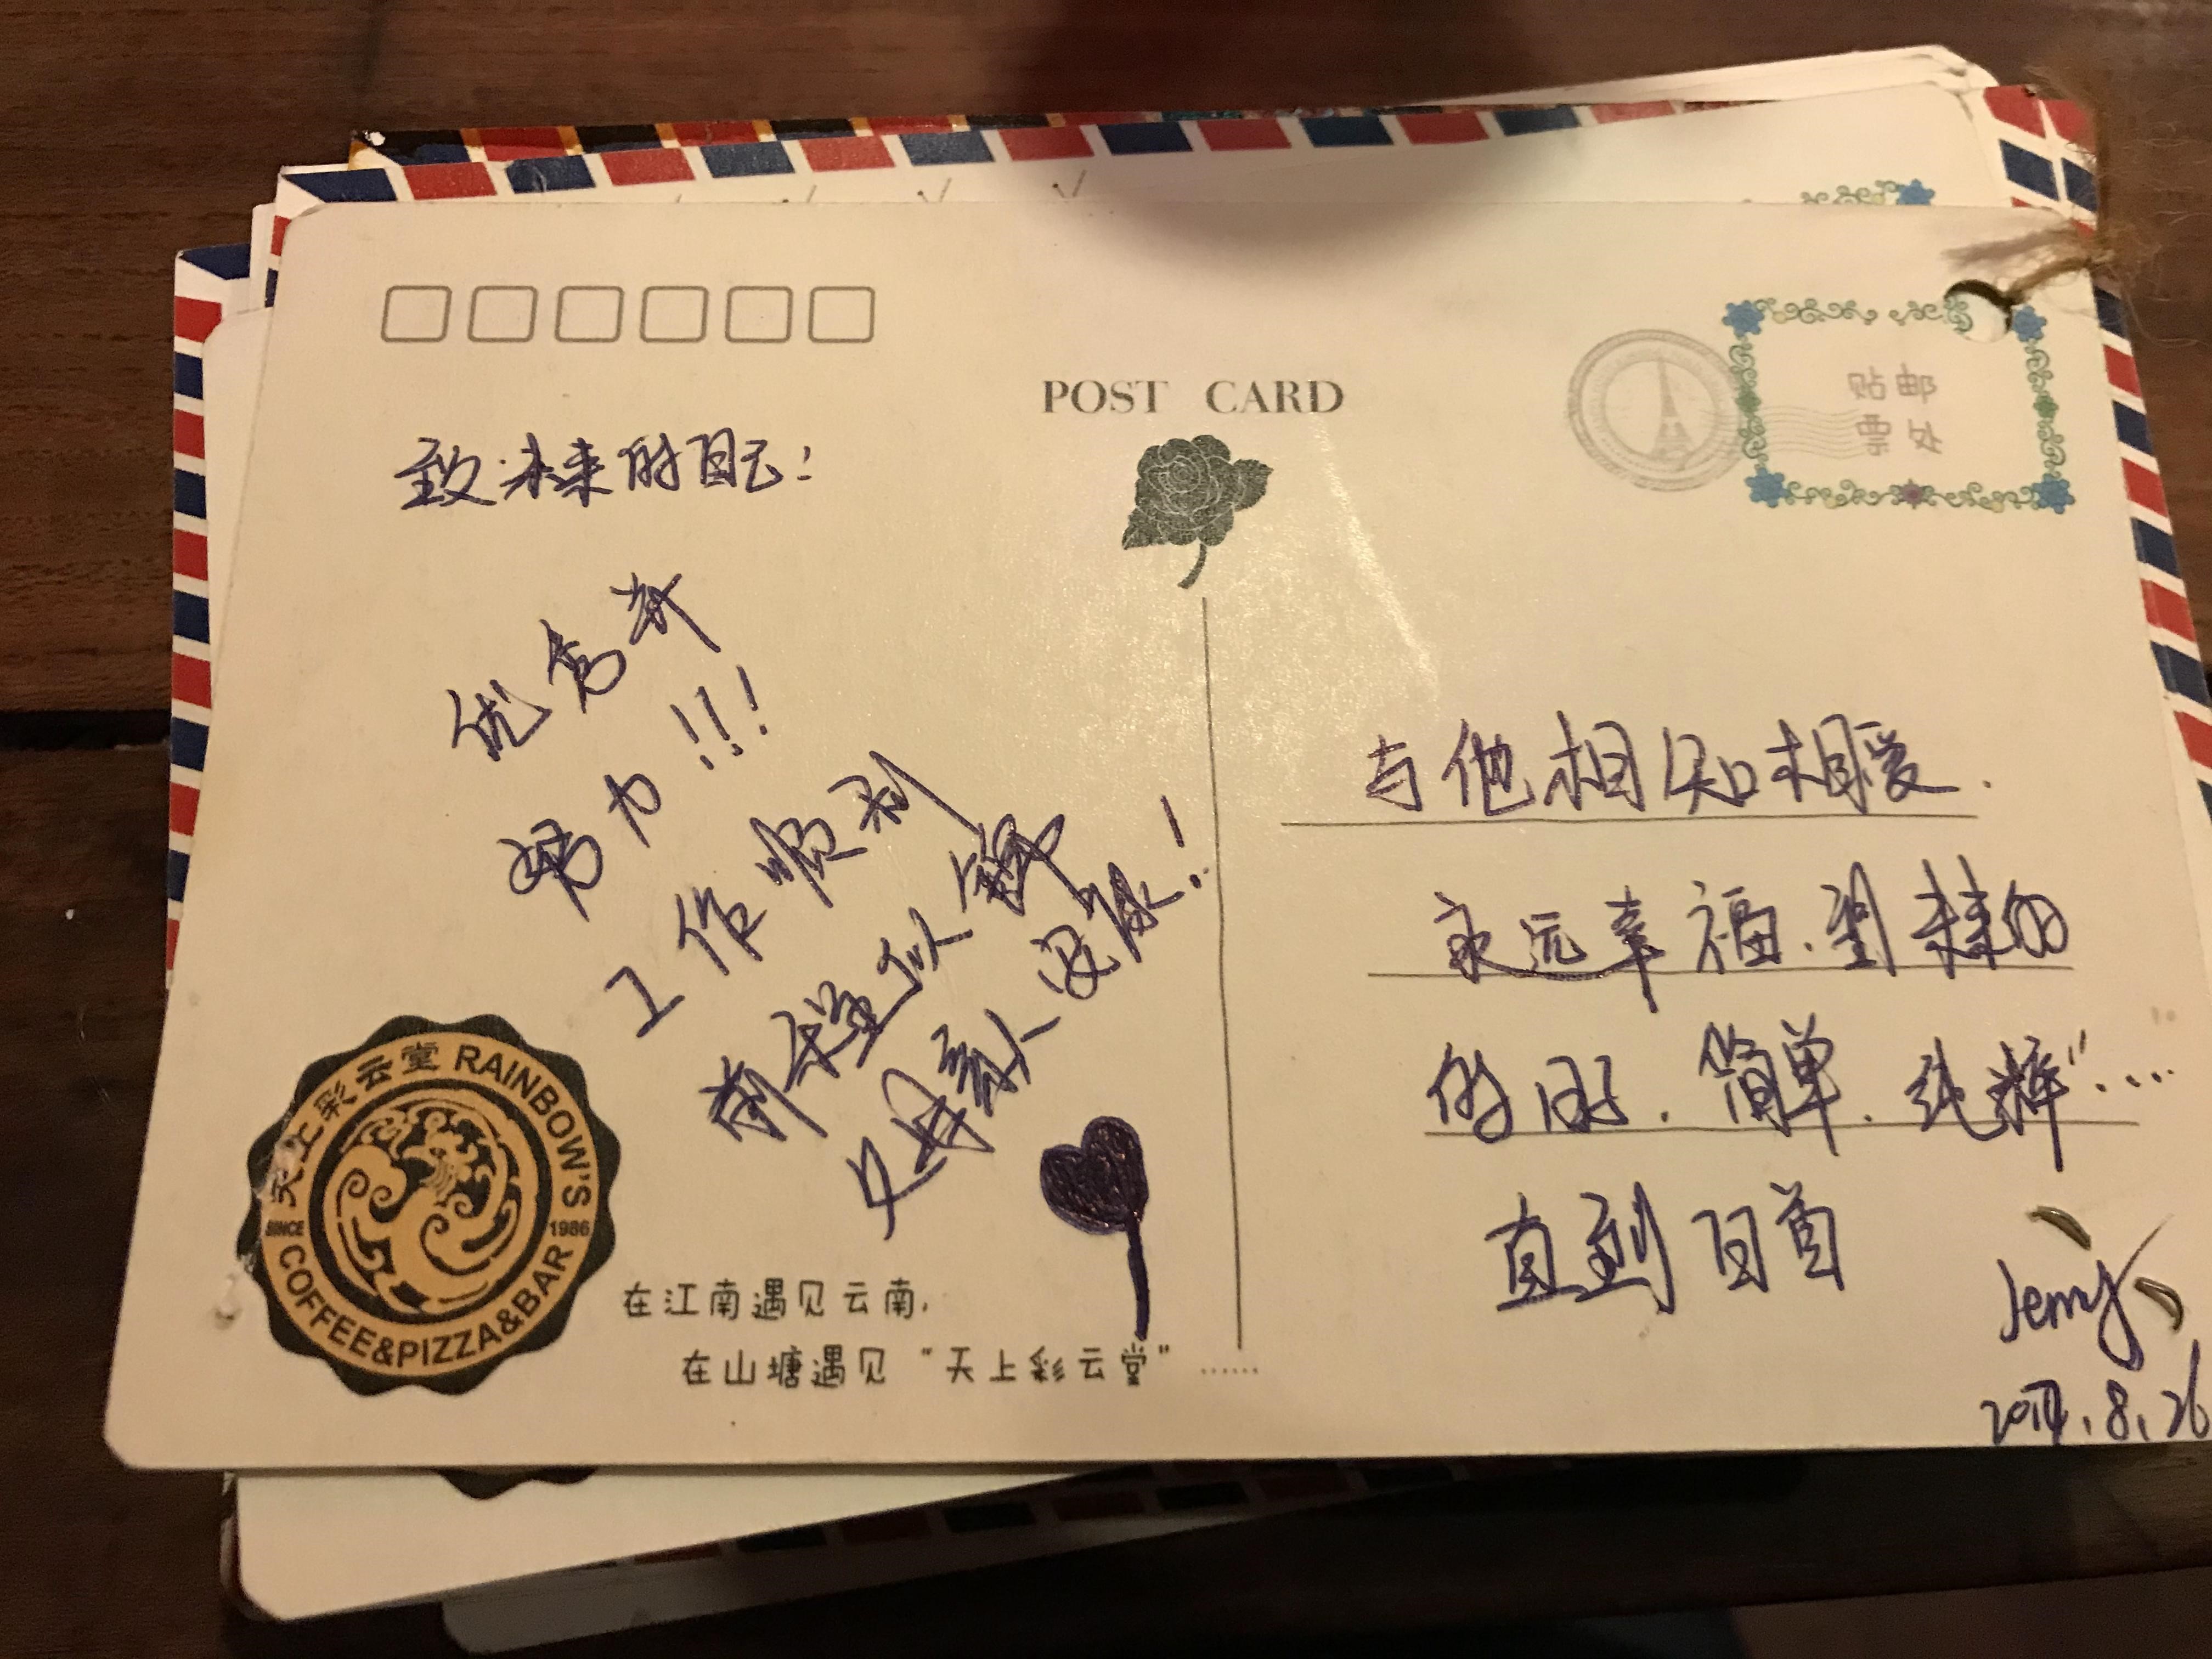 POST CARD
贴邮
票处
致未来的自己：
优秀并
努力!!!
工作顺利
前程似锦
父母亲人安康！
与他相知相爱.
永远幸福.
的.简单.纯粹"....
直到白首
Jenny
8.26
天上彩云堂 RAINBOW'S
SINCE 1986
COFFEE&PIZZA&BAR
在江南遇见云南,
在山塘遇见“天上彩云堂”......